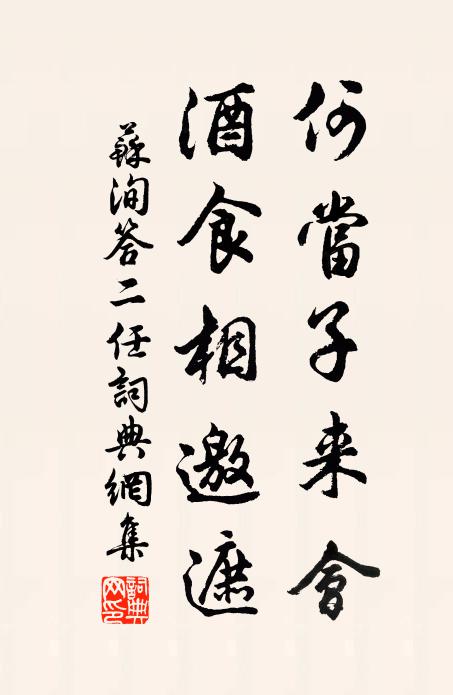 何當子来會
酒食相邀遮
蘇洵答二任詞典網集
詞典网印